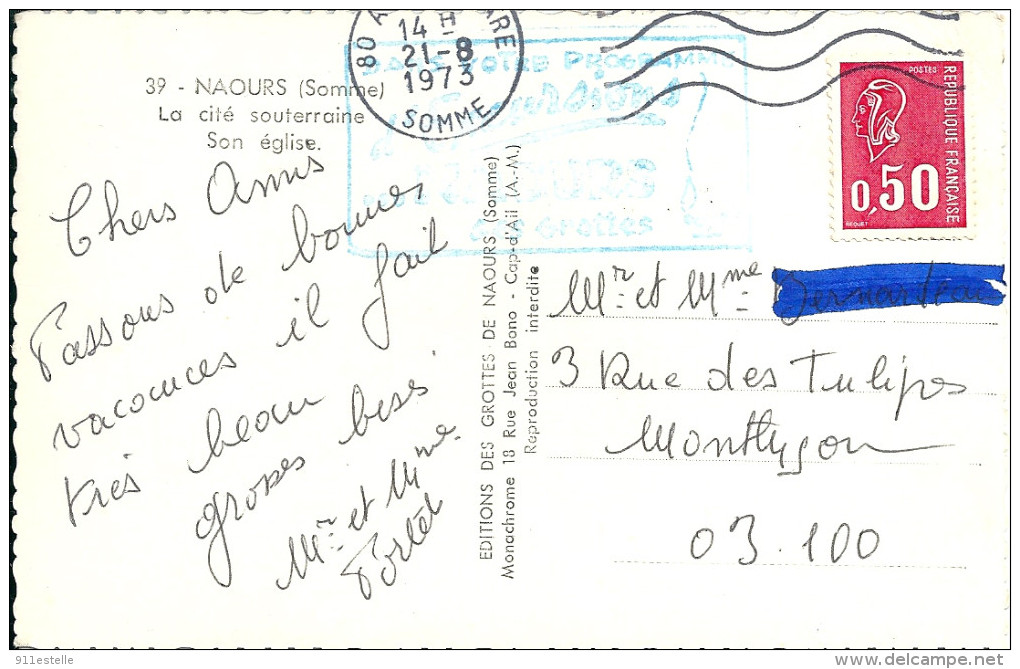 39 - NAOURS (Somme)
La cité souterraine
Son église.
80
ARE
14 H
21-8
1973
SOMME
PROGRAMME
des Grottes
POSTES
REPUBLIQUE FRANÇAISE
0,50
Chers Amis
Passons de bonnes
vacances il fait
très beau
groses bises
Mr et Mme
Portet
EDITIONS DES GROTTES DE NAOURS (Somme)
Monachrome 18 Rue Jean Bono - Cap-d'Ail (A.-M.)
Reproduction interdite
Mr et Mme
3 Rue des Tulipes
Montluçon
03.100
911estelle
delcampe.net